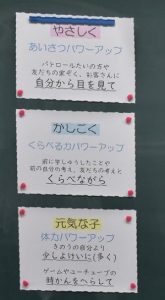 やさしく
あいさつパワーアップ
パトロールたいの方や
友だちの家ぞく、お客さんに
自分から目を見て
かしこく
くらべる力パワーアップ
前に学しゅうしたことや
前の自分の考え、友だちの考えと
くらべながら
元気な子
体力パワーアップ
きのうの自分より
少しよけいに(多く)
ゲームやユーチューブの
時かんをへらして